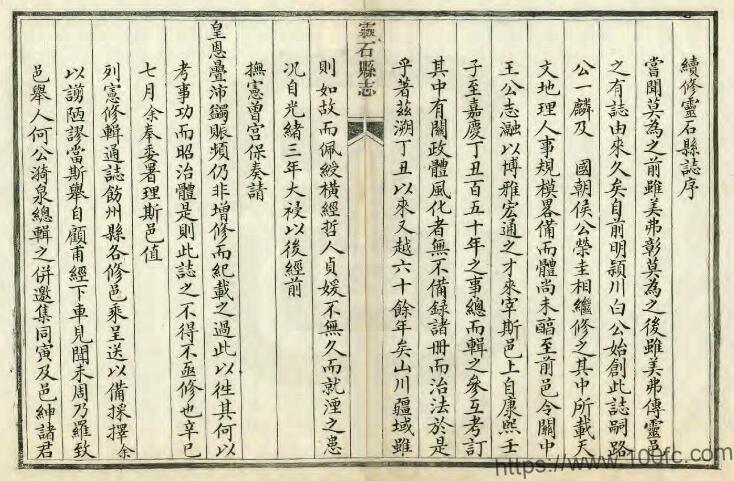 續修靈石縣誌序
嘗聞莫為之前雖美弗彰莫為之後雖美弗傳靈邑
之有誌由來久矣自前明潁川白公始創此誌嗣路
公一麟及 國朝侯公榮圭相繼修之其中所載天
文地理人事規模畧備而體尚未醇至前邑令關中
王公志瀜以博雅宏通之才來宰斯邑上自康熙壬
子至嘉慶丁丑百五十年之事總而輯之參互考訂
其中有關政體風化者無不備錄諸冊而治法於是
乎著茲溯丁丑以來又越六十餘年矣山川疆域雖
靈石縣志
則如故而佩綬橫經哲人貞媛不無久而就湮之患
况自光緒三年大祲以後經前
撫憲曾宮保奏請
皇恩疊沛蠲賑頻仍非增修而紀載之過此以徃其何以
考事功而昭治體是則此誌之不得不亟修也辛巳
七月余奉委署理斯邑值
列憲修輯通誌飭州縣各修邑乘呈送以備採擇余
以謭陋謬當斯舉自顧甫經下車見聞未周乃羅致
邑舉人何公漪泉總輯之併邀集同寅及邑紳諸君
https://www.100fc.com